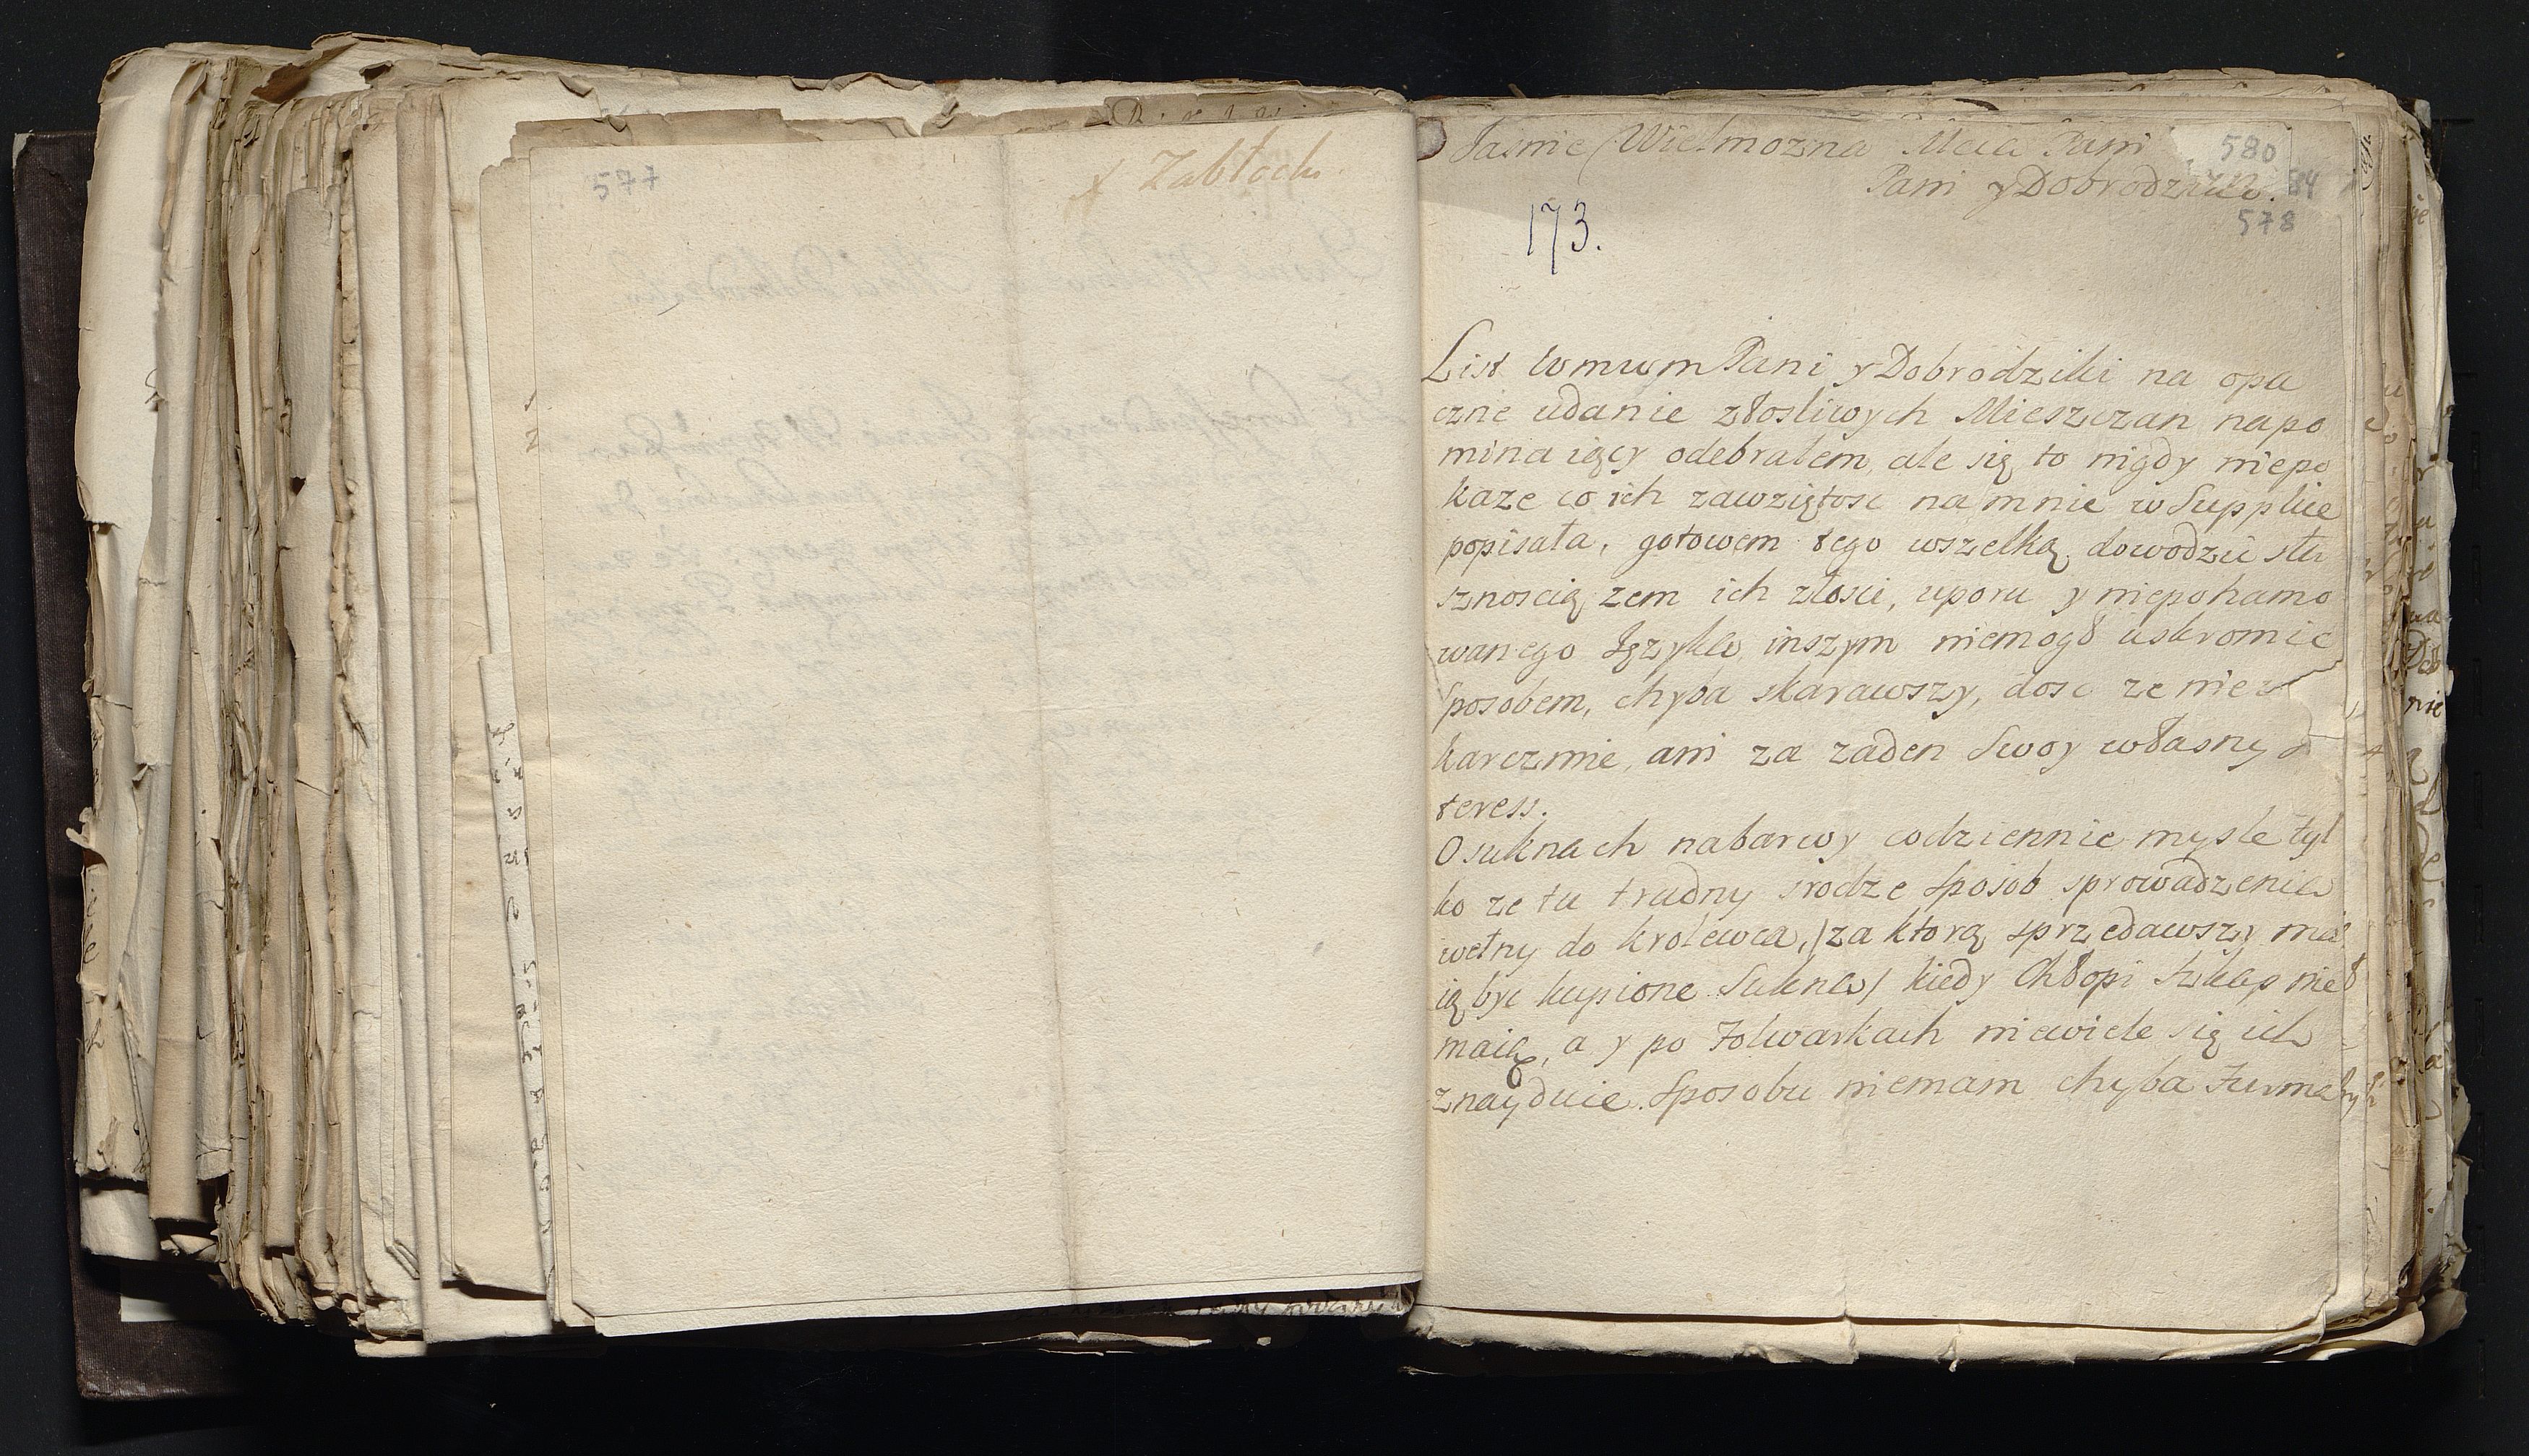 577
x Zabłocki
Jasnie Wielmozna Mcia Pani
Pani y Dobrodziko.
580
578
173.
List WMWM Pani y Dobrodziki na opa
cznie udanie złosliwych Mieszczan napo
mina iący odebralem, ale się to nigdy niepo
kaze co ich zawziętosc na mnie w Supplice
popisała, gotowem tego wszelką dowodzic słu
sznoscią zem ich złosci, uporu y niepohamo
wanego Języka inszym niemogł uskromic
sposobem, chyba skarawszy, dosc ze nie
karczmie, ani za zaden Swoy własny
teress.
O suknach na barwy codziennie mysle tyl
ko ze tu trudny srodze sposob sprowadzenia
wełny do Krolewca, /za ktorą sprzedawszy ma
ią byc kupione Sukna/ kiedy Chłopi Szkap nie
maią, a y po Folwarkach niewiele się ich
znayduie. Sposobu niemam chyba Furma